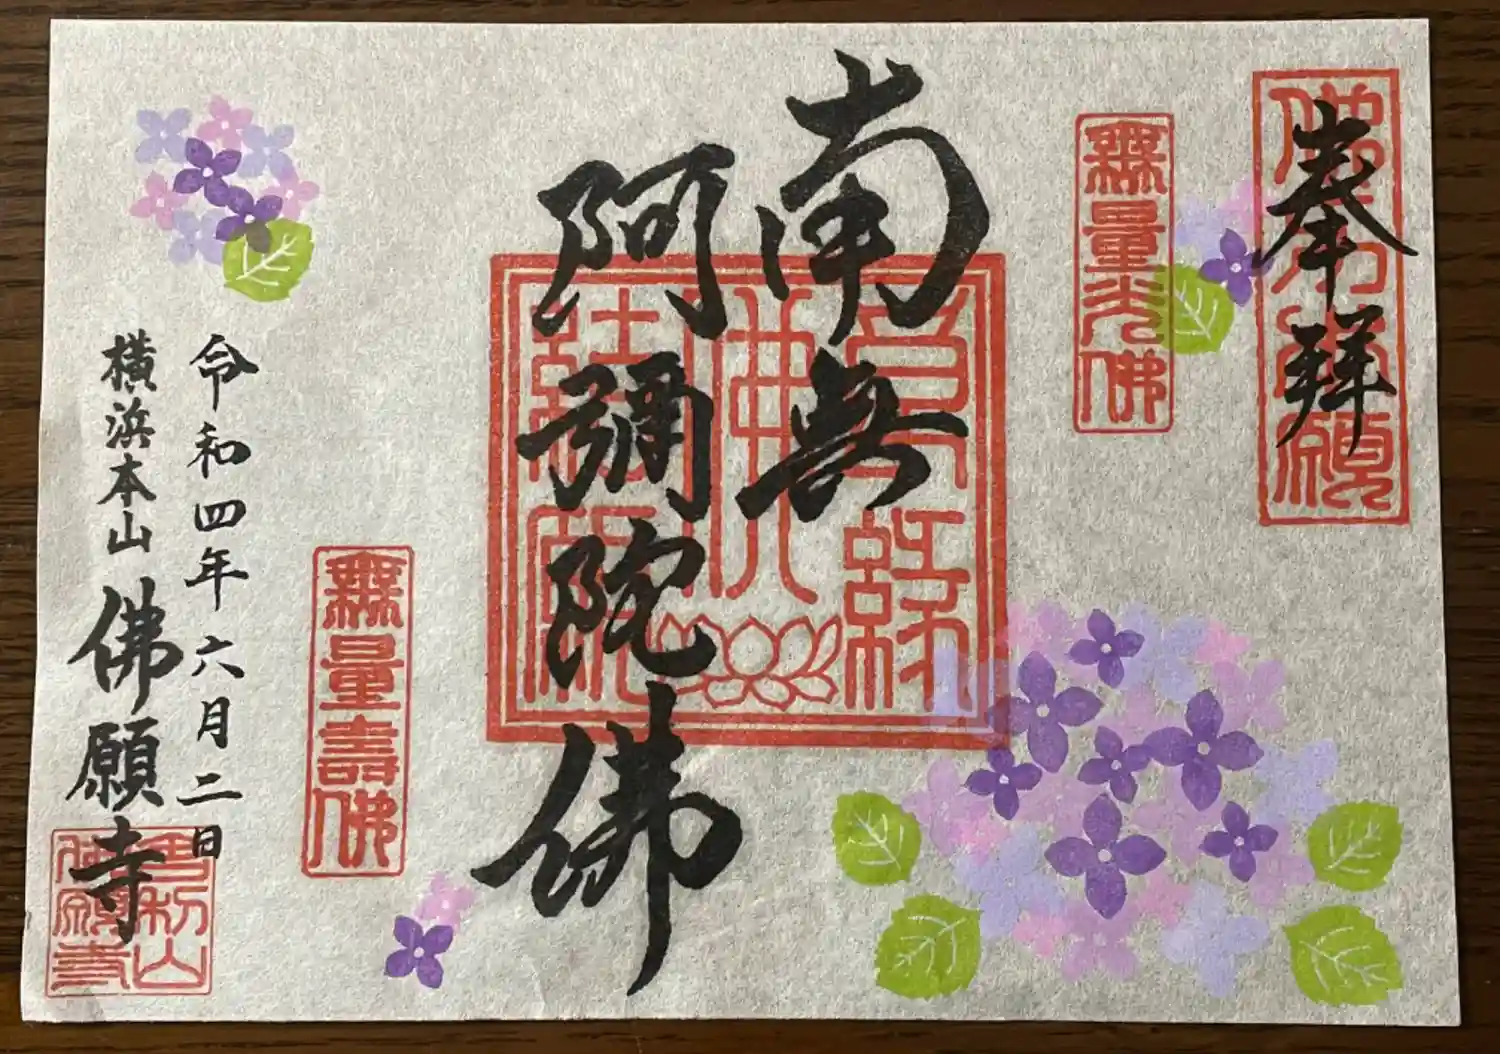 奉拝
無量光佛
南無
阿彌陀佛
無量壽佛
令和四年六月二日
横浜本山 佛願寺